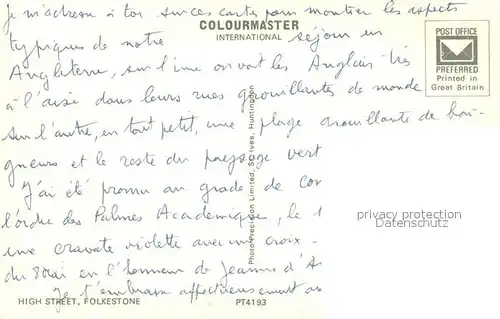 Je m'adresse à toi sur ces cartes pour montrer les aspects
COLOURMASTER
INTERNATIONAL
typiques de notre séjour en
POST OFFICE
PREFERRED
Printed in
Great Britain
Angleterre, sur l'une on voit les Anglais très
à l'aise dans leurs rues grouillantes de monde
sur l'autre, en tout petit, une plage grouillante de bai-
gneurs et le reste du paysage vert
J'ai été promu au grade de com
l'ordre des Palmes Académiques, le 1
une cravate violette avec un croix
du 8 mai en l'honneur de Jeanne d'A
Je t'embrasse affectueusement au
Photo Precision Limited, St. Ives, Huntingdon
privacy protection
Datenschutz
HIGH STREET, FOLKESTONE
PT4193